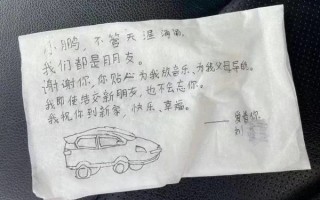 小鹏，不管天涯海角，
我们都是朋友。
谢谢你，你贴心为我放音乐，为我父母导航。
我即使结交新朋友，也不会忘你。
我祝你到新家，快乐、幸福。
——爱着你
的